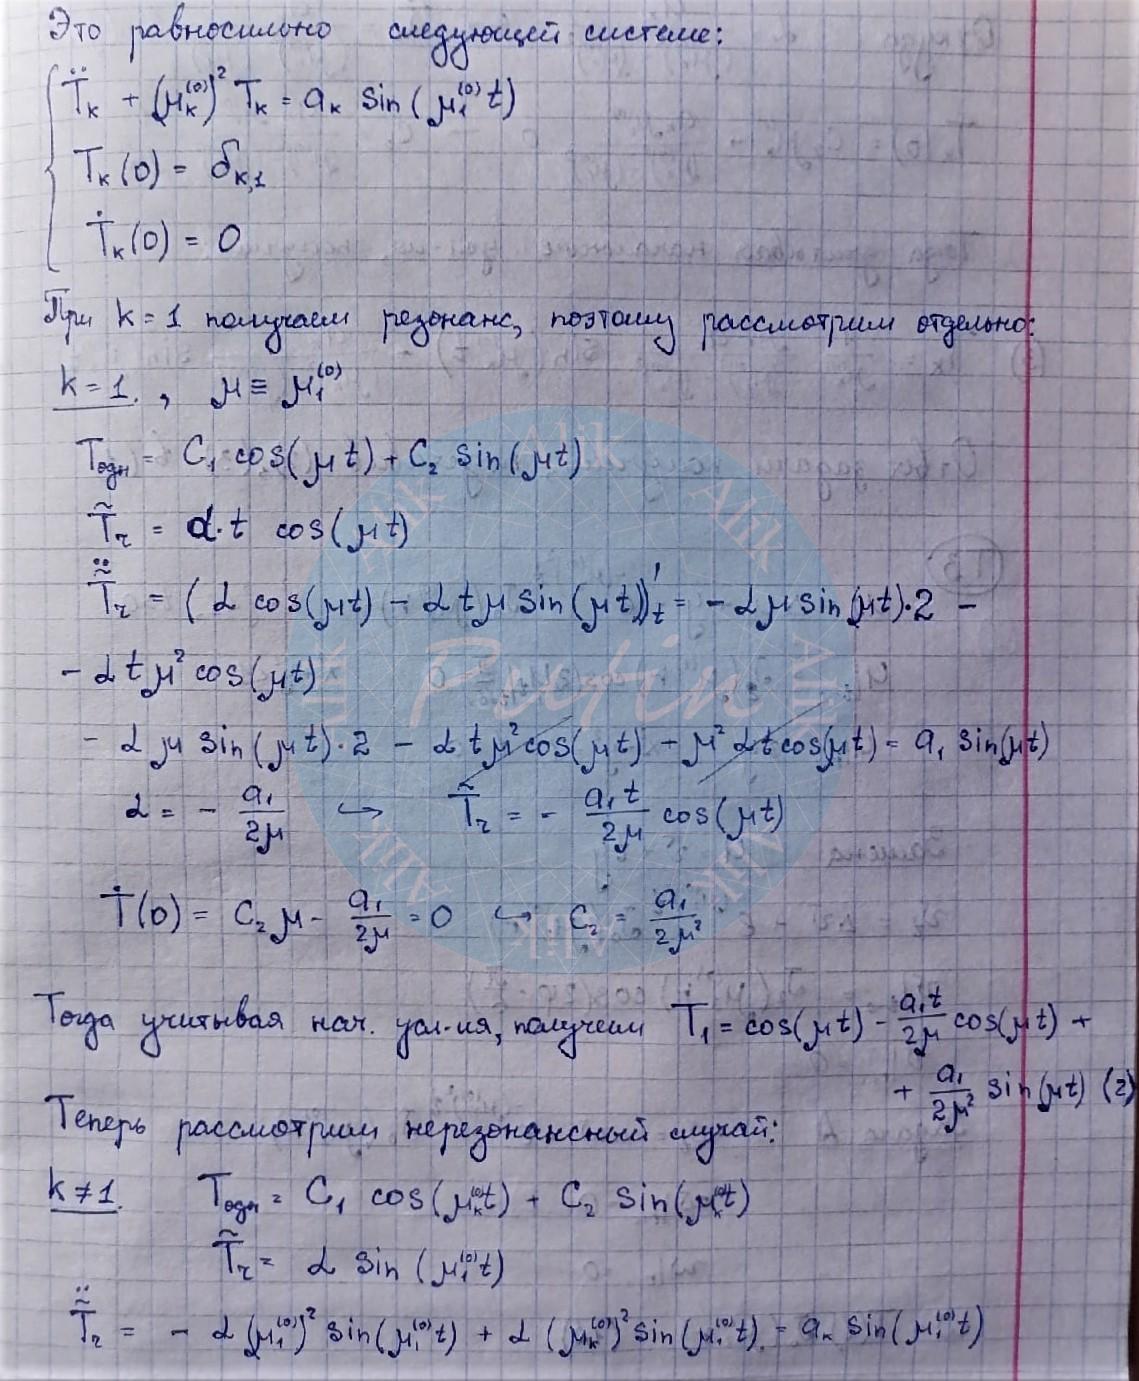 Это равносильно следующей системе:
T̈ₖ + (μₖ⁽⁰⁾)² Tₖ = aₖ sin(μ₁⁽⁰⁾t)
Tₖ(0) = δₖ,₁
Ṫₖ(0) = 0
При k=1 получаем резонанс, поэтому рассмотрим отдельно:
k=1. , μ ≡ μ₁⁽⁰⁾
Tодн = C₁ cos(μt) + C₂ sin(μt)
T̃ч = α·t cos(μt)
T̃̈ч = (α cos(μt) − αtμ sin(μt))'ₜ = −αμ sin(μt)·2 −
− αtμ² cos(μt)
− αμ sin(μt)·2 − αtμ² cos(μt) + μ² αt cos(μt) = a₁ sin(μt)
α = − a₁/2μ ↪ T̃ч = − a₁t/2μ cos(μt)
Ṫ(0) = C₂μ − a₁/2μ = 0 ↪ C₂ = a₁/2μ²
Тогда учитывая нач. усл-ия, получаем T₁ = cos(μt) − a₁t/2μ cos(μt) +
+ a₁/2μ² sin(μt) (2)
Теперь рассмотрим нерезонансный случай:
k≠1. Tодн = C₁ cos(μₖ⁽⁰⁾t) + C₂ sin(μₖ⁽⁰⁾t)
T̃ч = α sin(μ₁⁽⁰⁾t)
T̃̈ч = − α(μ₁⁽⁰⁾)² sin(μ₁⁽⁰⁾t) + α(μₖ⁽⁰⁾)² sin(μ₁⁽⁰⁾t) = aₖ sin(μ₁⁽⁰⁾t)
Putin
Alik
Alik
Alik
Alik
Alik
Alik
Alik
Alik